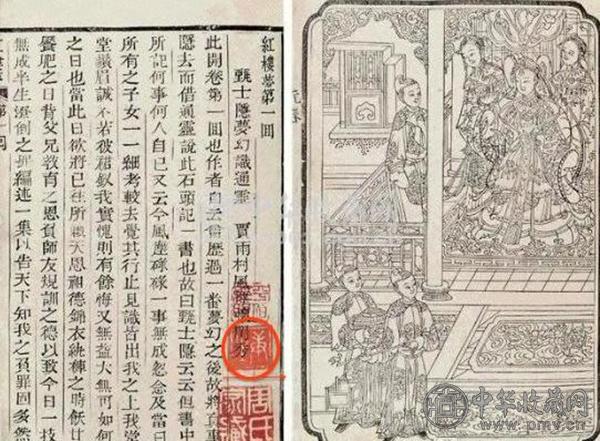 紅樓夢第一回
甄士隱夢幻識通靈 賈雨村風塵懷閨秀
此開卷第一回也作者自云曾歷過一番夢幻之後故將真事
隱去而借通靈說此石頭記一書也故曰甄士隱云云但書中
所記何事何人自己又云今風塵碌碌一事無成忽念及當日
所有之子女一一細考較去覺其行止見識皆出我之上我堂
堂鬚眉誠不若彼裙釵我實愧則有餘悔又無益大無可如何
之日也當此日欲將已往所賴天恩祖德錦衣紈褲之時飫甘
饜肥之日背父兄教育之恩負師友規訓之德以致今日一技
無成半生潦倒之罪編述一集以告天下知我之負罪固多然
第一回
元春
中华收藏网
www.pmv.cn